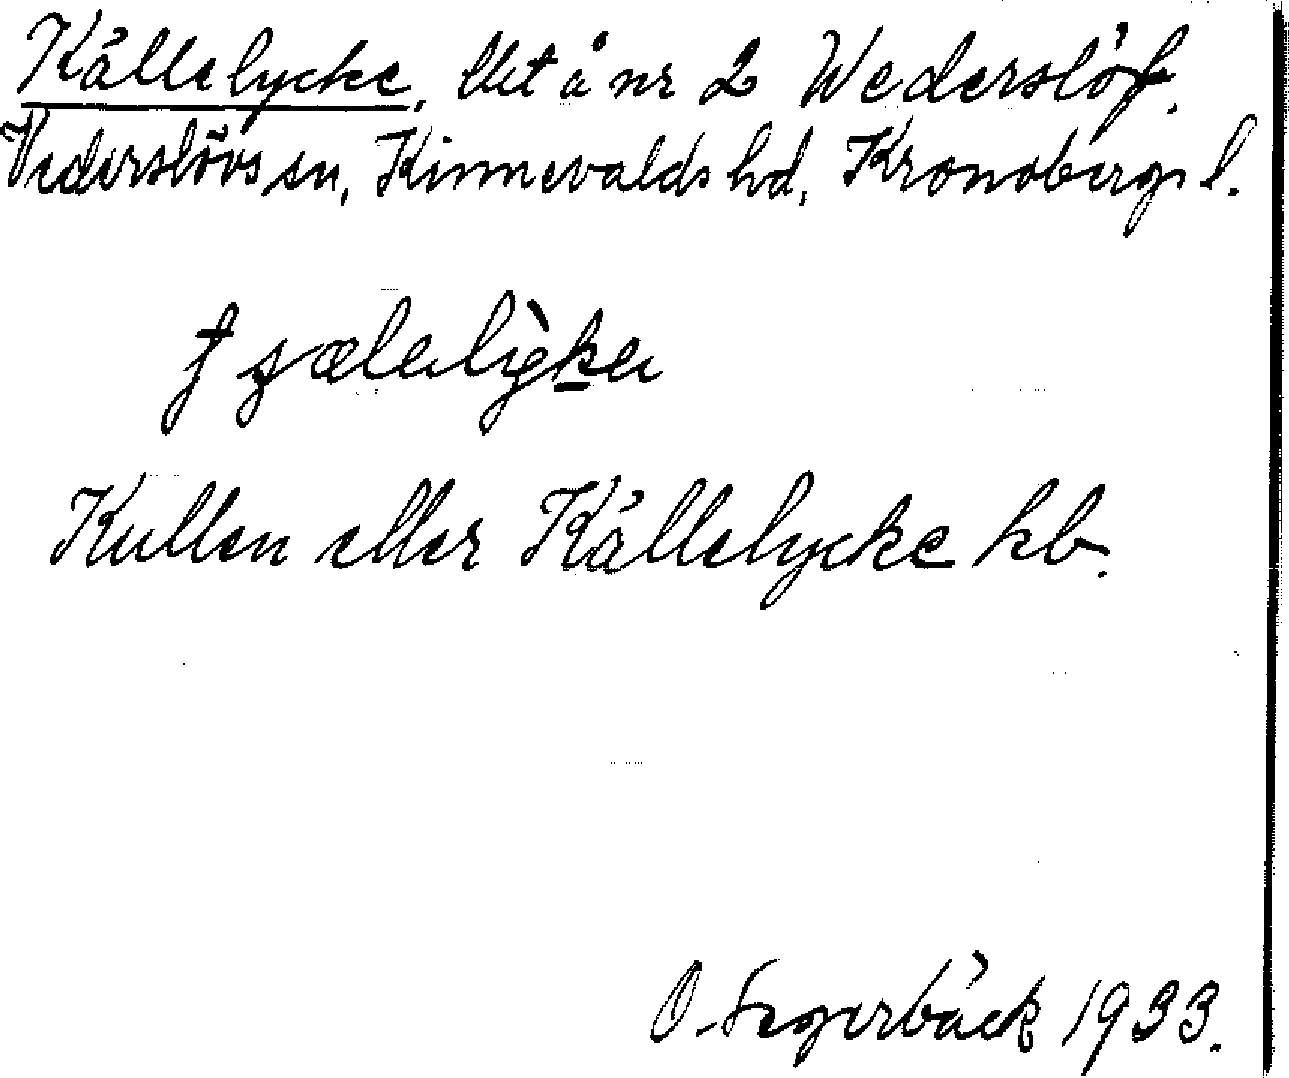 Källelycke, lht å nr 2 Wederslöf.
Vederslövs sn, Kinnevalds hd, Kronobergs l.
Kullen eller Källelycke kb.
O. Segerbäck 1933.